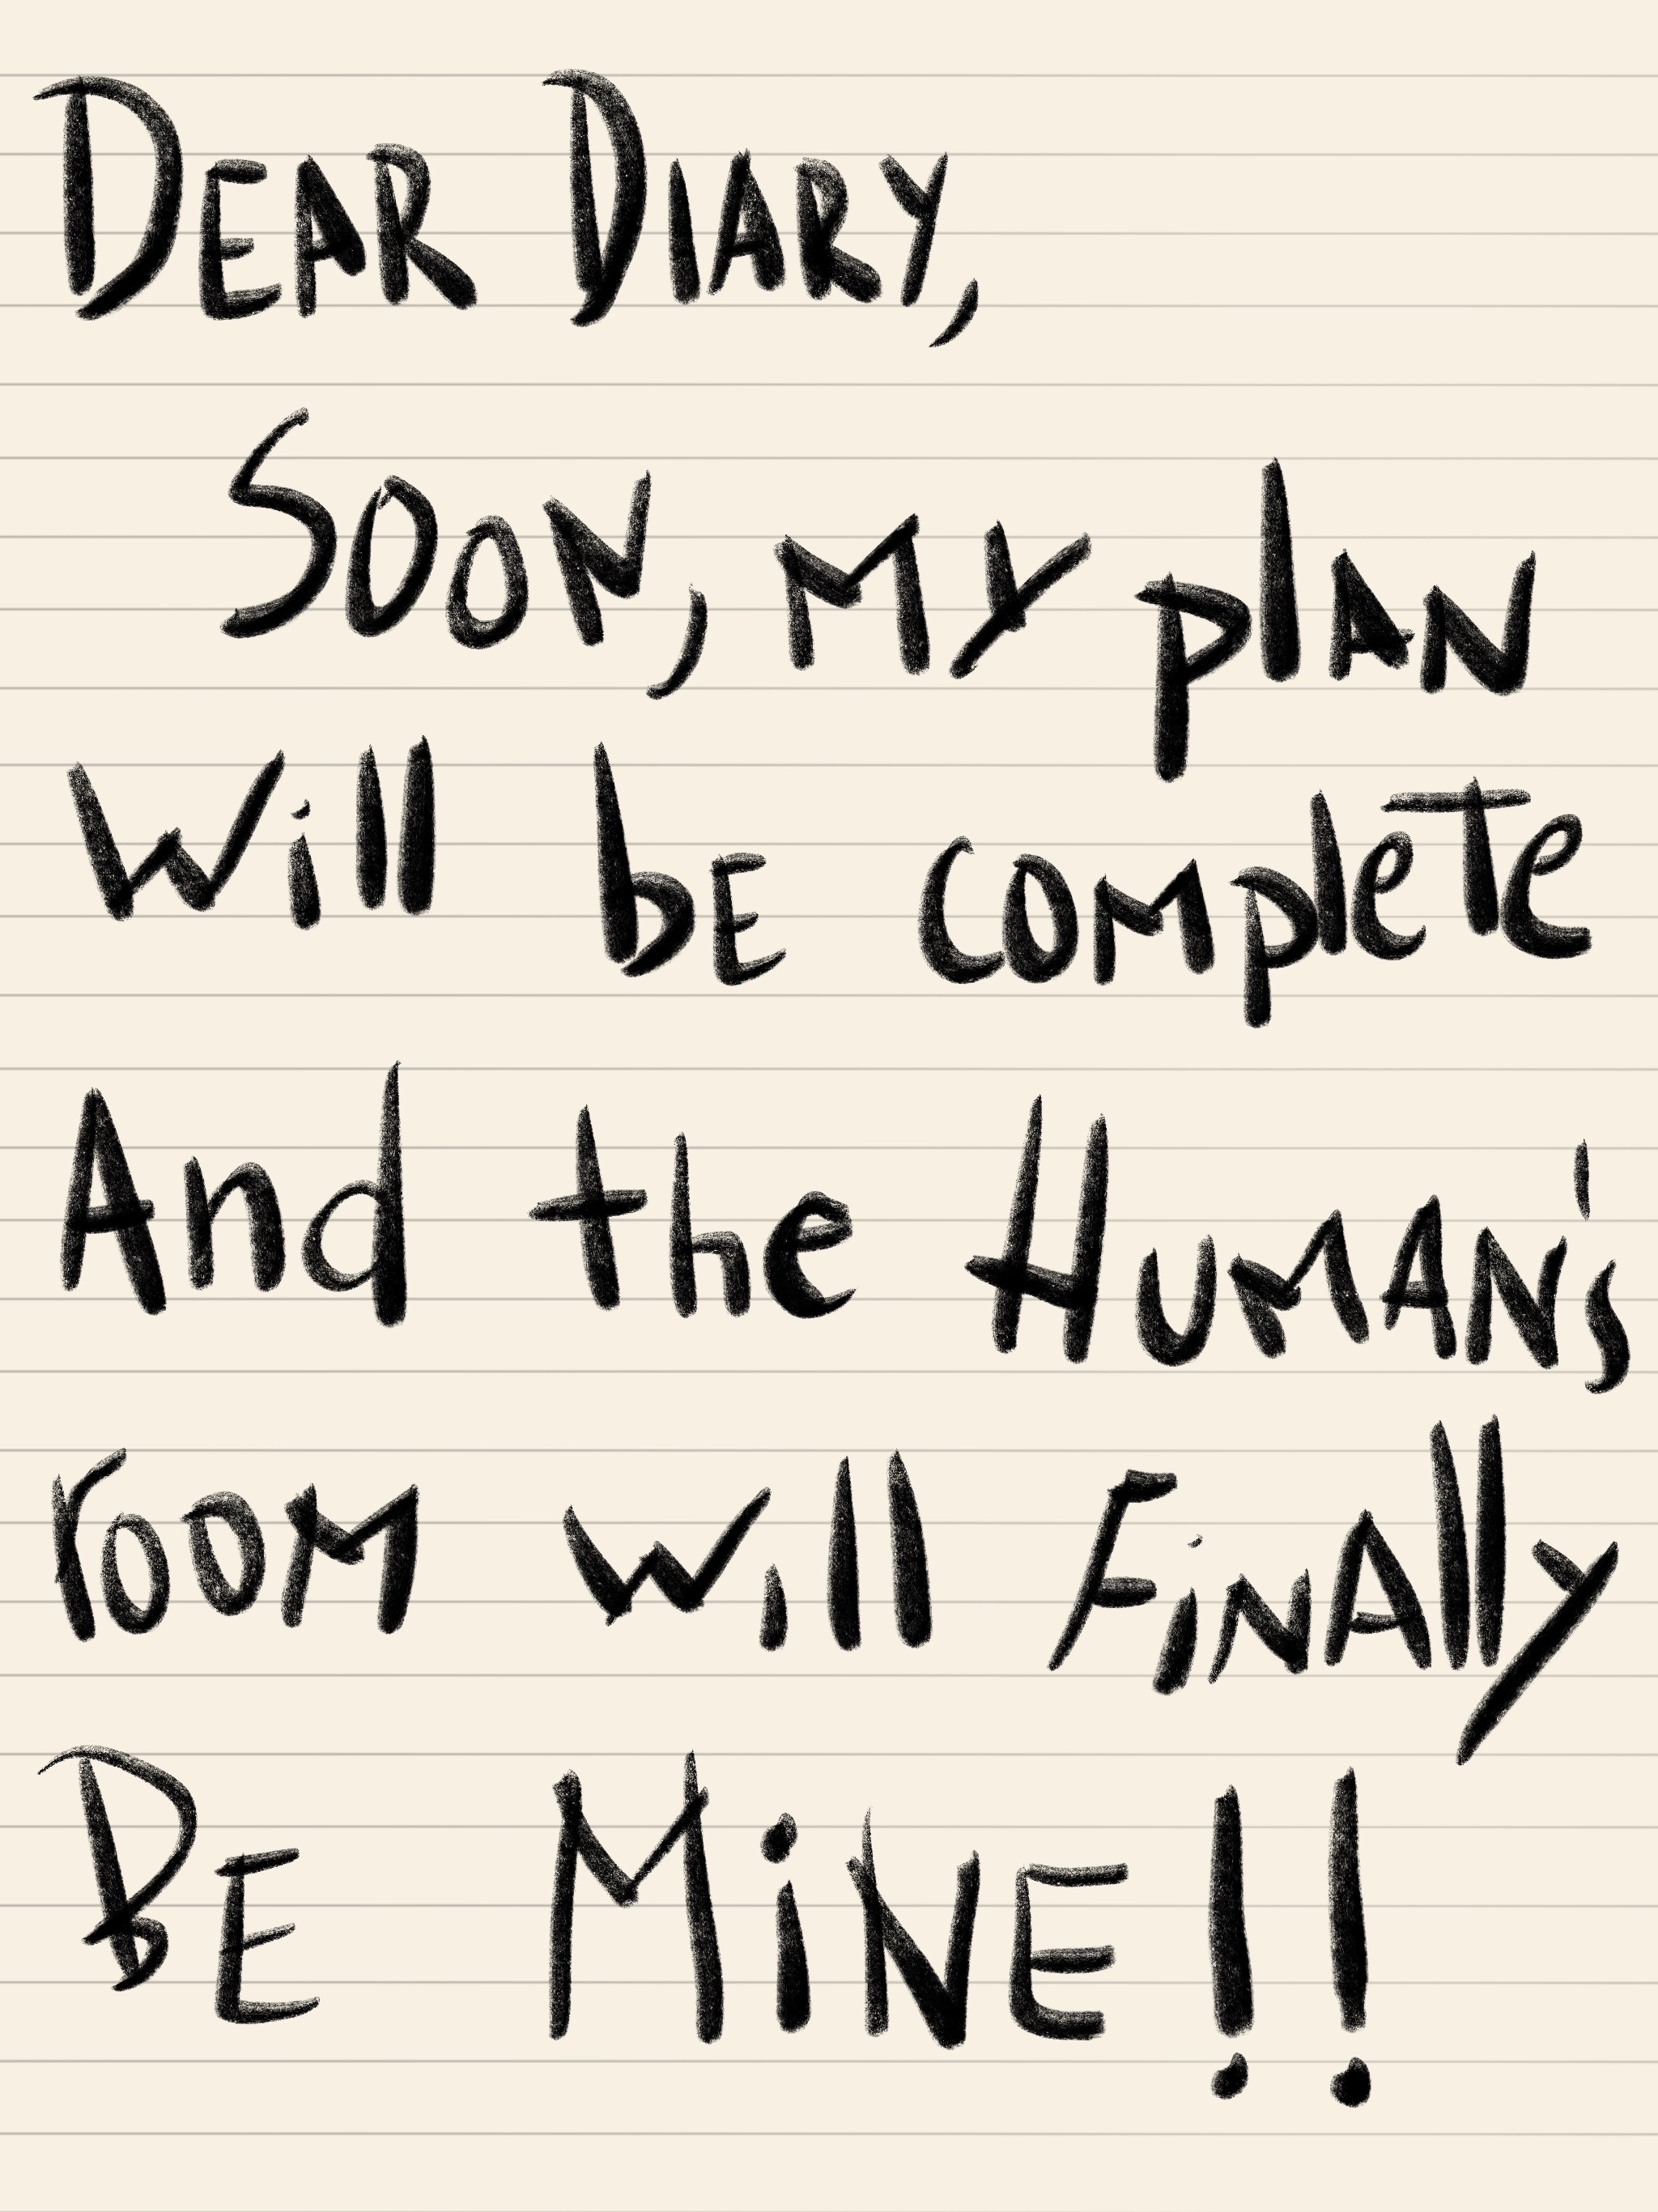 DEAR DIARY,
SOON, MY plAN
Will bE COMpleTe
And the HUMAN's
rOOM will FiNAlly
BE MiNE!!